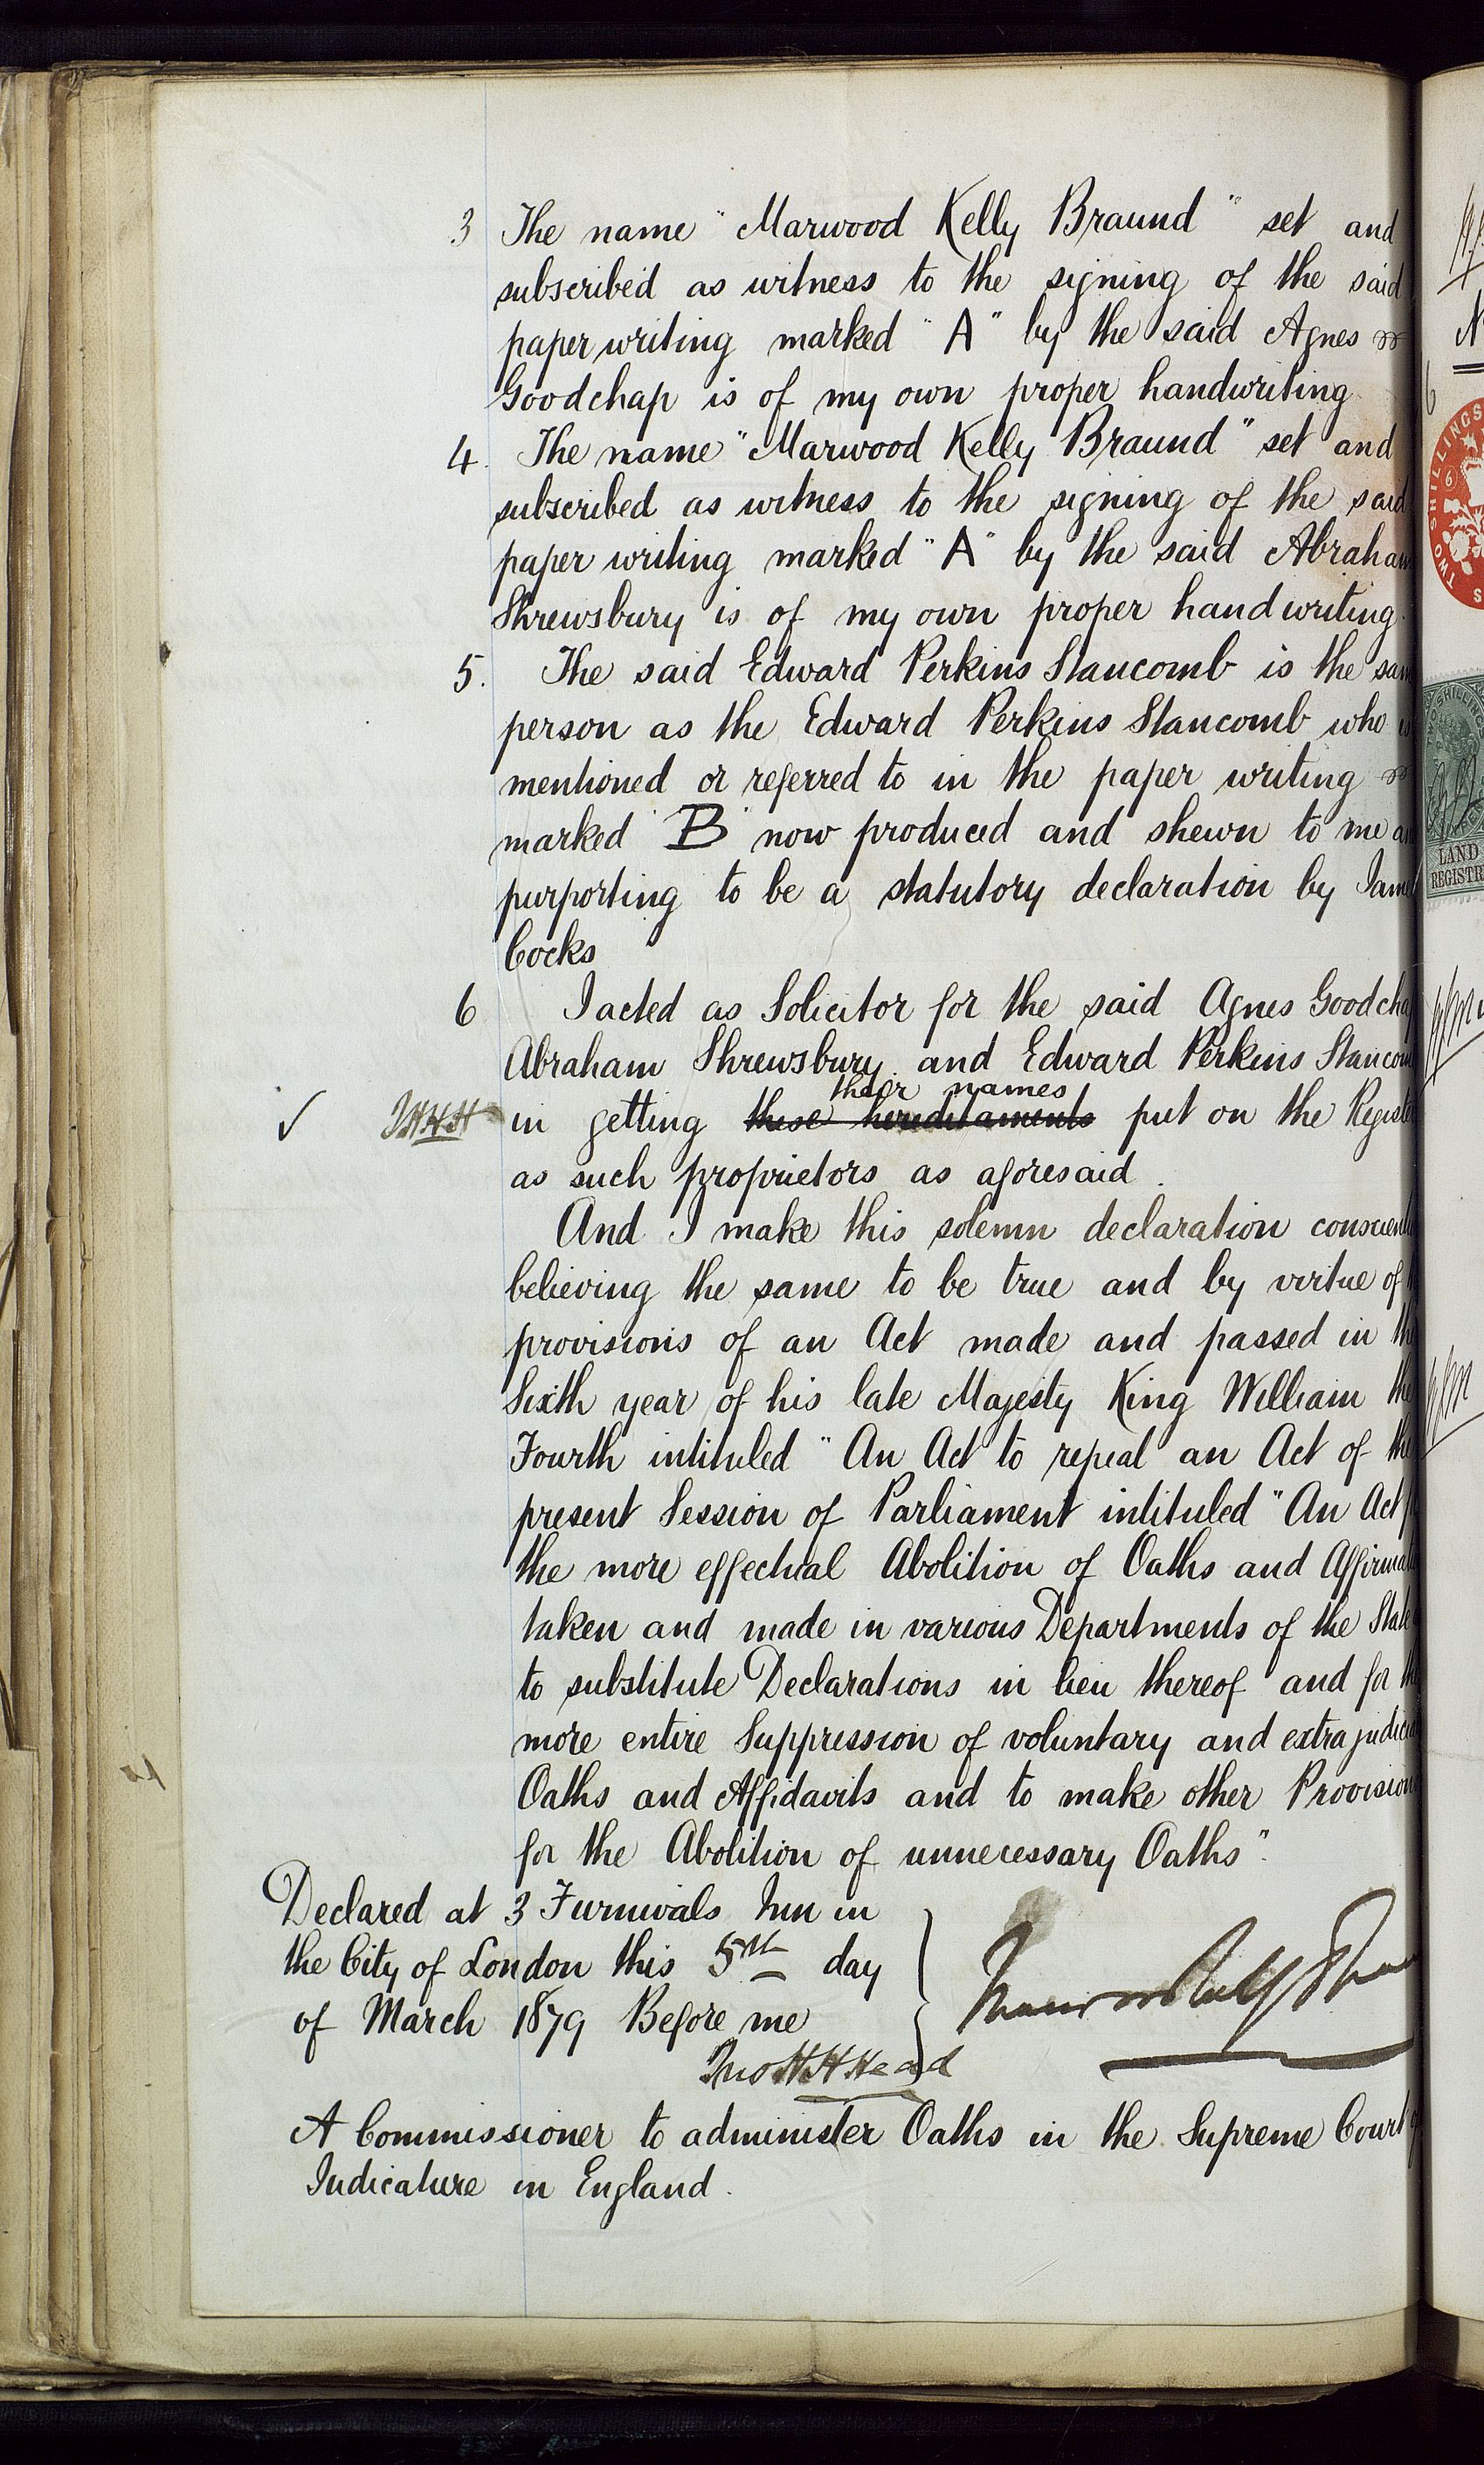 3 The name "Marwood Kelly Braund" set and
subscribed as witness to the signing of the said
paper writing marked "A" by the said Agnes
Goodchap is of my own proper handwriting
4. The name "Marwood Kelly Braund" set and
subscribed as witness to the signing of the said
paper writing marked "A" by the said Abraham
Shrewsbury is of my own proper handwriting.
5. The said Edward Perkins Stancomb is the sam
person as the Edward Perkins Stancomb who
mentioned or referred to in the paper writing
marked "B" now produced and shewn to me a
purporting to be a statutory declaration by Jame
Cocks
6 I acted as Solicitor for the said Agnes Goodcha
Abraham Shrewsbury and Edward Perkins Stancom
their names
JHHH in getting these hereditaments put on the Registe
as such proprietors as aforesaid.
And I make this solemn declaration conscient
believing the same to be true and by virtue of
provisions of an Act made and passed in the
Sixth year of his late Majesty King William the
Fourth intituled "An Act to repeal an Act of the
present Session of Parliament intituled "An Act
the more effectual Abolition of Oaths and Affirmat
taken and made in various Departments of the State
to substitute Declarations in lieu thereof and for th
more entire Suppression of voluntary and extra judicia
Oaths and Affidavits and to make other Provision
for the Abolition of unnecessary Oaths".
Declared at 3 Furnivals Inn in
the City of London this 5th day
of March 1879 Before me
Jno H H Head
A Commissioner to administer Oaths in the Supreme Court
Judicature in England.
TWO SHILLINGS
6
LAND
REGISTR